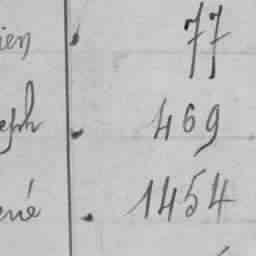 ien . 77
eph . 469
ené . 1454